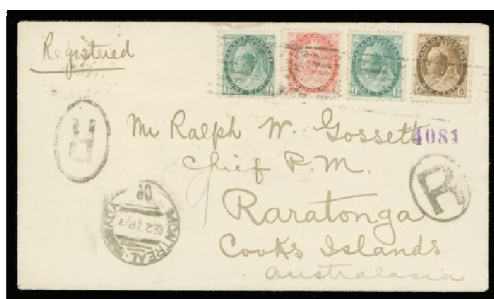 Registered
R
Mr Ralph W. Gossett
4081
Chief P.M.
R
Raratonga
Cooks Islands
Australasia
MONTREAL